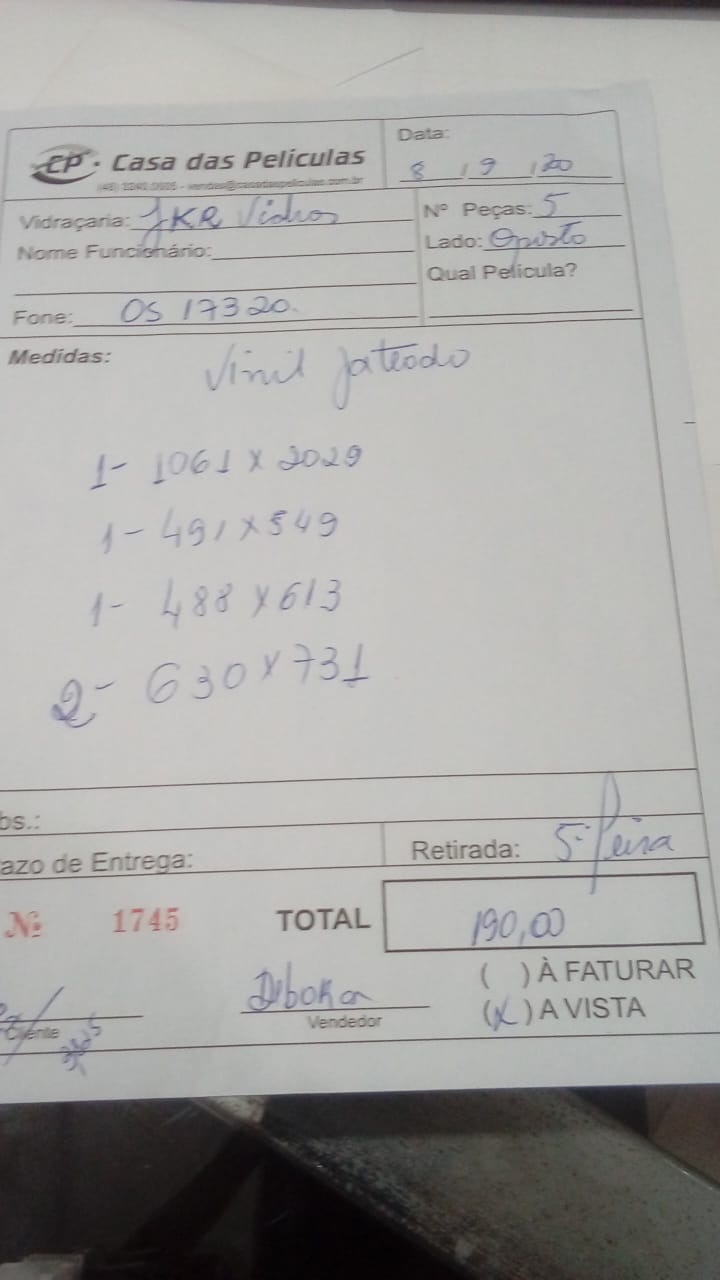 CP · Casa das Películas
Data: 8 / 9 / 20
Vidraçaria: JKR Vidros
Nº Peças: 5
Nome Funcionário:
Lado: Oposto
Qual Película?
Fone: OS 17320.
Medidas:
Vinil Jateado
1- 1061 x 2029
1- 491 x 549
1- 488 x 613
2- 630 x 731
bs.:
azo de Entrega:
Retirada: 5ª feira
Nº 1745
TOTAL 190,00
( ) À FATURAR
(X) A VISTA
Debora
Cliente
Vendedor